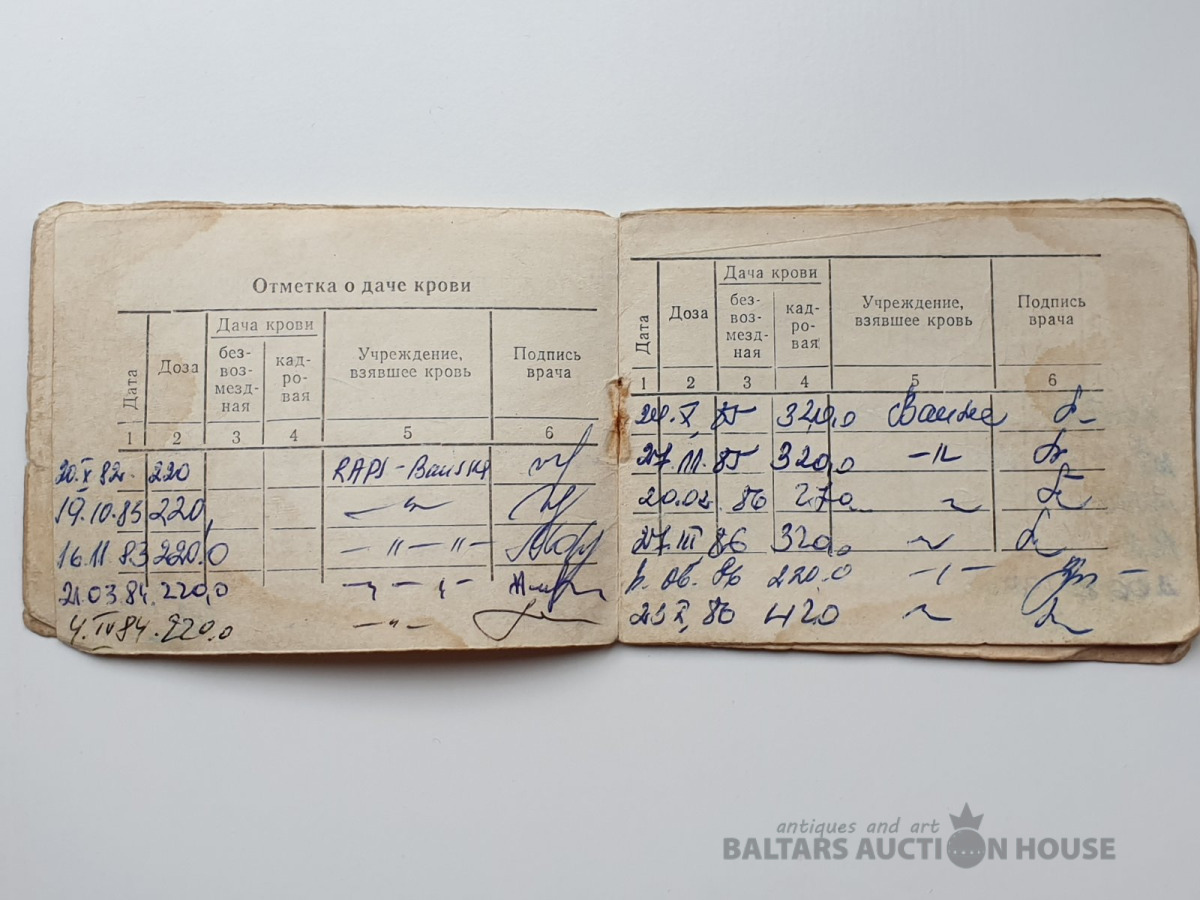 Отметка о даче крови
Дата
Доза
Дача крови
без-
воз-
мезд-
ная
кад-
ро-
вая
Учреждение,
взявшее кровь
Подпись
врача
1 2 3 4 5 6
20.X 82. 220 RAPS-Bauska
19.10.83 220 -"-
16.11.83 220.0 -"-"-
21.03.84. 220,0 -"-"-
4.IV 84. 220,0 -"-
Дата
Доза
Дача крови
без-
воз-
мезд-
ная
кад-
ро-
вая
Учреждение,
взявшее кровь
Подпись
врача
1 2 3 4 5 6
X, 85 320,0 Bauska
27.11.85 320,0 -"-
20.02.86 270
27.III 86 320,0
06.86 220.0 -"-
86 420
antiques and art
BALTARS AUCTION HOUSE